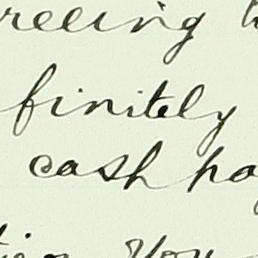 reeing
finitely
cash pa
You